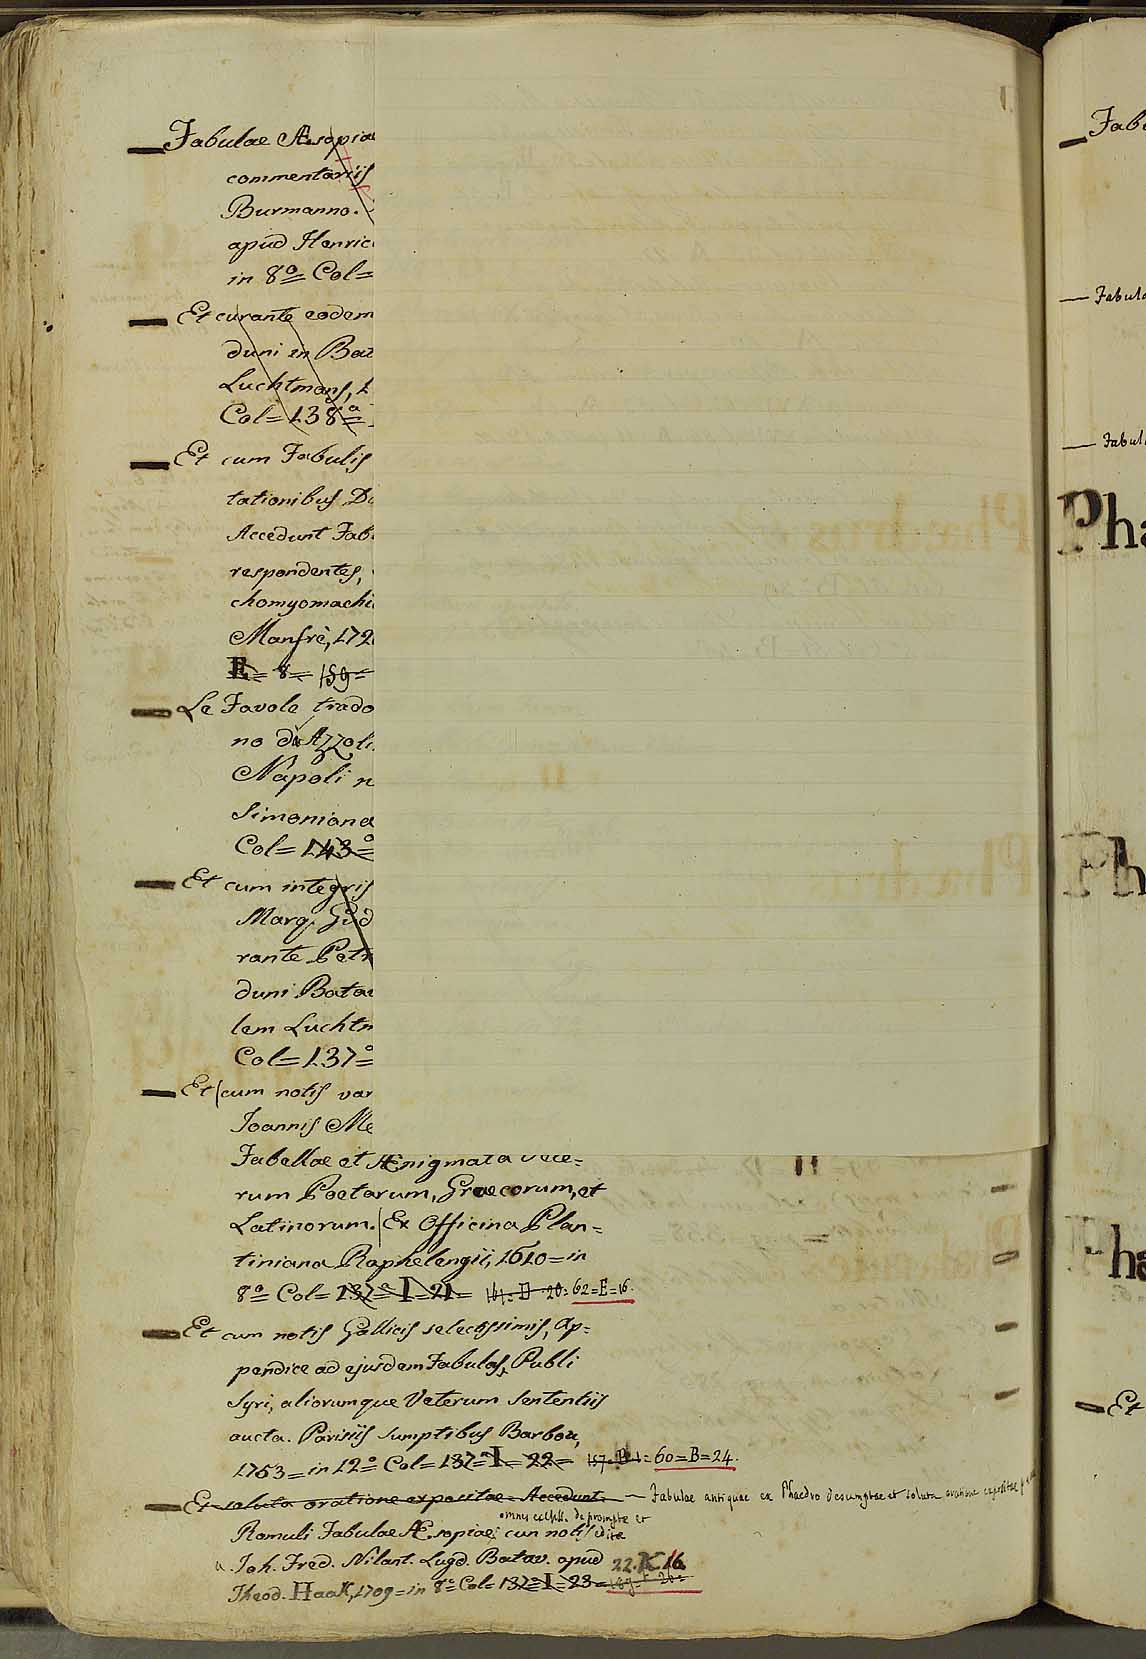 Fabulae Æsopiae
commentariis
Burmanno.
apud Henric
in 8º= Col=
Et curante eodem
duni in Bat
Luchtmans, 1
Col= 138ª=
Et cum Fabulis
tationibus D
Accedunt Fab
respondentes,
chomyomachi
Manfrè, 172
R= 8= 159=
Le Favole trado
no di Azzoli
Napoli n
Simoniana
Col= 143º=
Et cum integris
Marq. Gud
rante Petr
duni Batav
lem Luchtm
Col= 137º=
Et cum notis var
Joannis Me
Fabellae et Ænigmata vete=
rum Poetarum, Graecorum, et
Latinorum. Ex Officina Plan=
tiniana Raphelengii, 1610= in
8º= Col= 137ª= I= 21= 161= D 20= 62=E=16.
Et cum notis Gallicis selectissimis, Ap=
pendice ad ejusdem Fabulas, Publi
Syri, aliorumque Veterum sententiis
aucta. Parisiis sumptibus Barbou,
1753= in 12º= Col= 137ª= I= 22= 157= B 1= 60=B=24.
Et soluta oratione expositae. Accedunt — Fabulae antiquae ex Phaedro desumptae et soluta oratione expositae
omnes de prompte et
Romuli Fabulae Æsopiae; cun notis
Joh. Fred. Nilant. Lugd. Batav. apud 22. K 16
Theod. Haak, 1709= in 8º= Col= 137ª= I= 23=
Fabu
Fabula
Fabul
Pha
Ph
Pha
Et